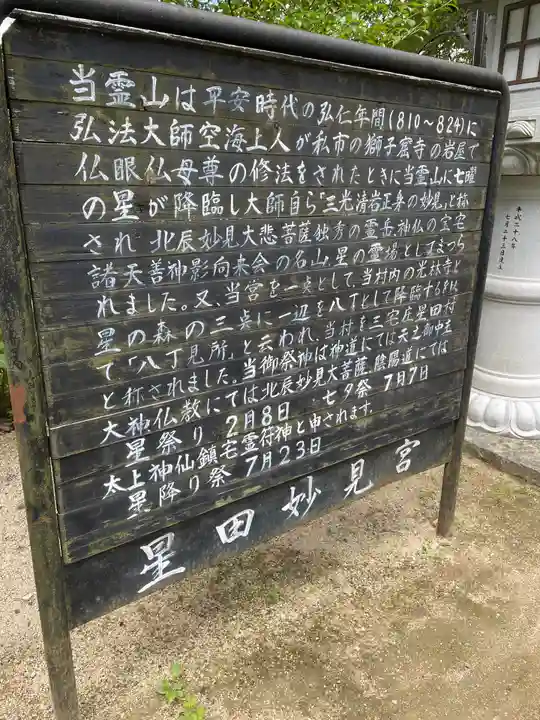 当霊山は平安時代の弘仁年間(810〜824)に
弘法大師空海上人が私市の獅子窟寺の岩屋で
仏眼仏母尊の修法をされたときに当霊山に七曜
の星が降臨し大師自ら「三光清岩正身の妙見」と称
され 北辰妙見大悲菩薩独秀の霊岳、神仏の宝宅
諸天善神影向来会の名山、星の霊場としてまつら
れました。又、当宮を一点として、当村内の光林寺と
星の森の三点に一辺を八丁として降臨するをは
て「八丁見所」と云われ、当村を三宅庄星田村
と称されました。当御祭神は神道にては天之御中主
大神 仏教にては北辰妙見大菩薩、陰陽道にては
星祭り 2月8日 七夕祭 7月7日
太上神仙鎮宅霊符神と申されます。
星降り祭 7月23日
星田妙見宮
平成二十八年
七月二十三日建立